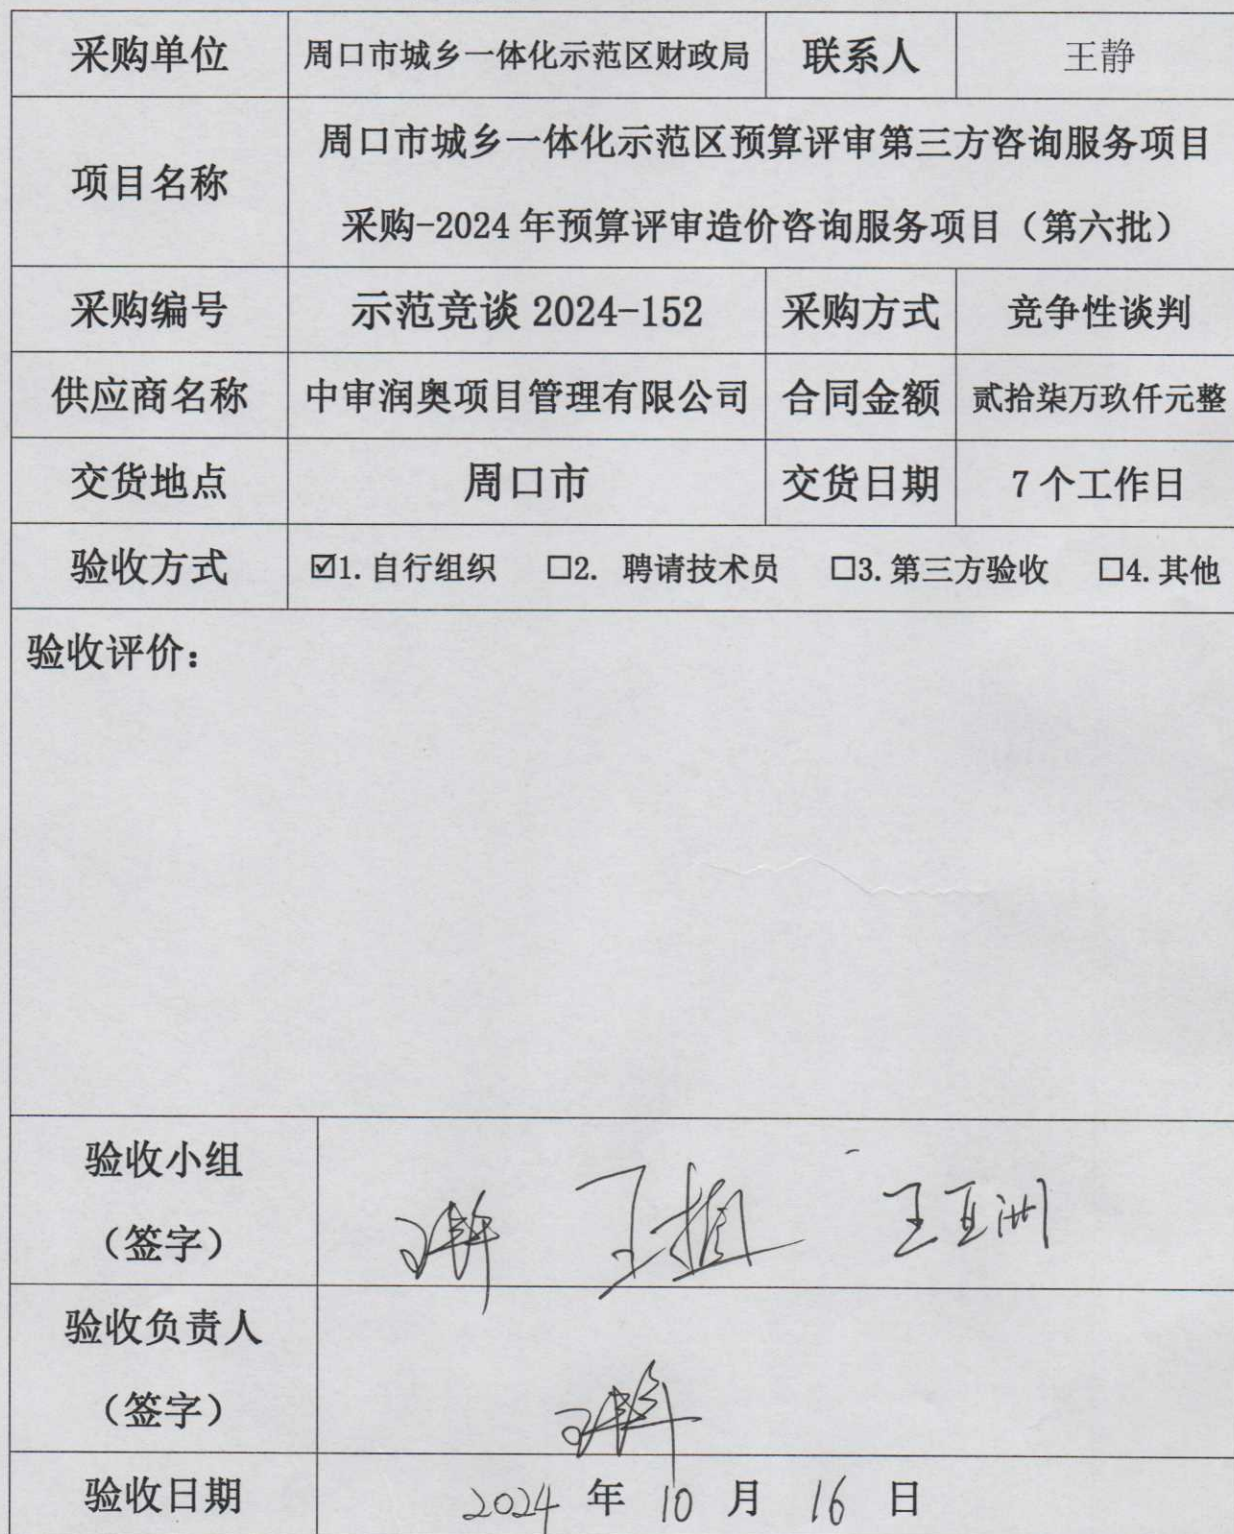 采购单位 周口市城乡一体化示范区财政局 联系人 王静
项目名称 周口市城乡一体化示范区预算评审第三方咨询服务项目
采购-2024年预算评审造价咨询服务项目（第六批）
采购编号 示范竞谈 2024-152 采购方式 竞争性谈判
供应商名称 中审润奥项目管理有限公司 合同金额 贰拾柒万玖仟元整
交货地点 周口市 交货日期 7个工作日
验收方式 ☑1.自行组织 ☐2. 聘请技术员 ☐3.第三方验收 ☐4.其他
验收评价：
验收小组
（签字） 王亚洲
验收负责人
（签字）
验收日期 2024 年 10 月 16 日